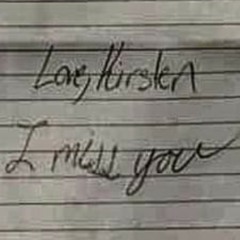 Love, Kirsten
I miss you